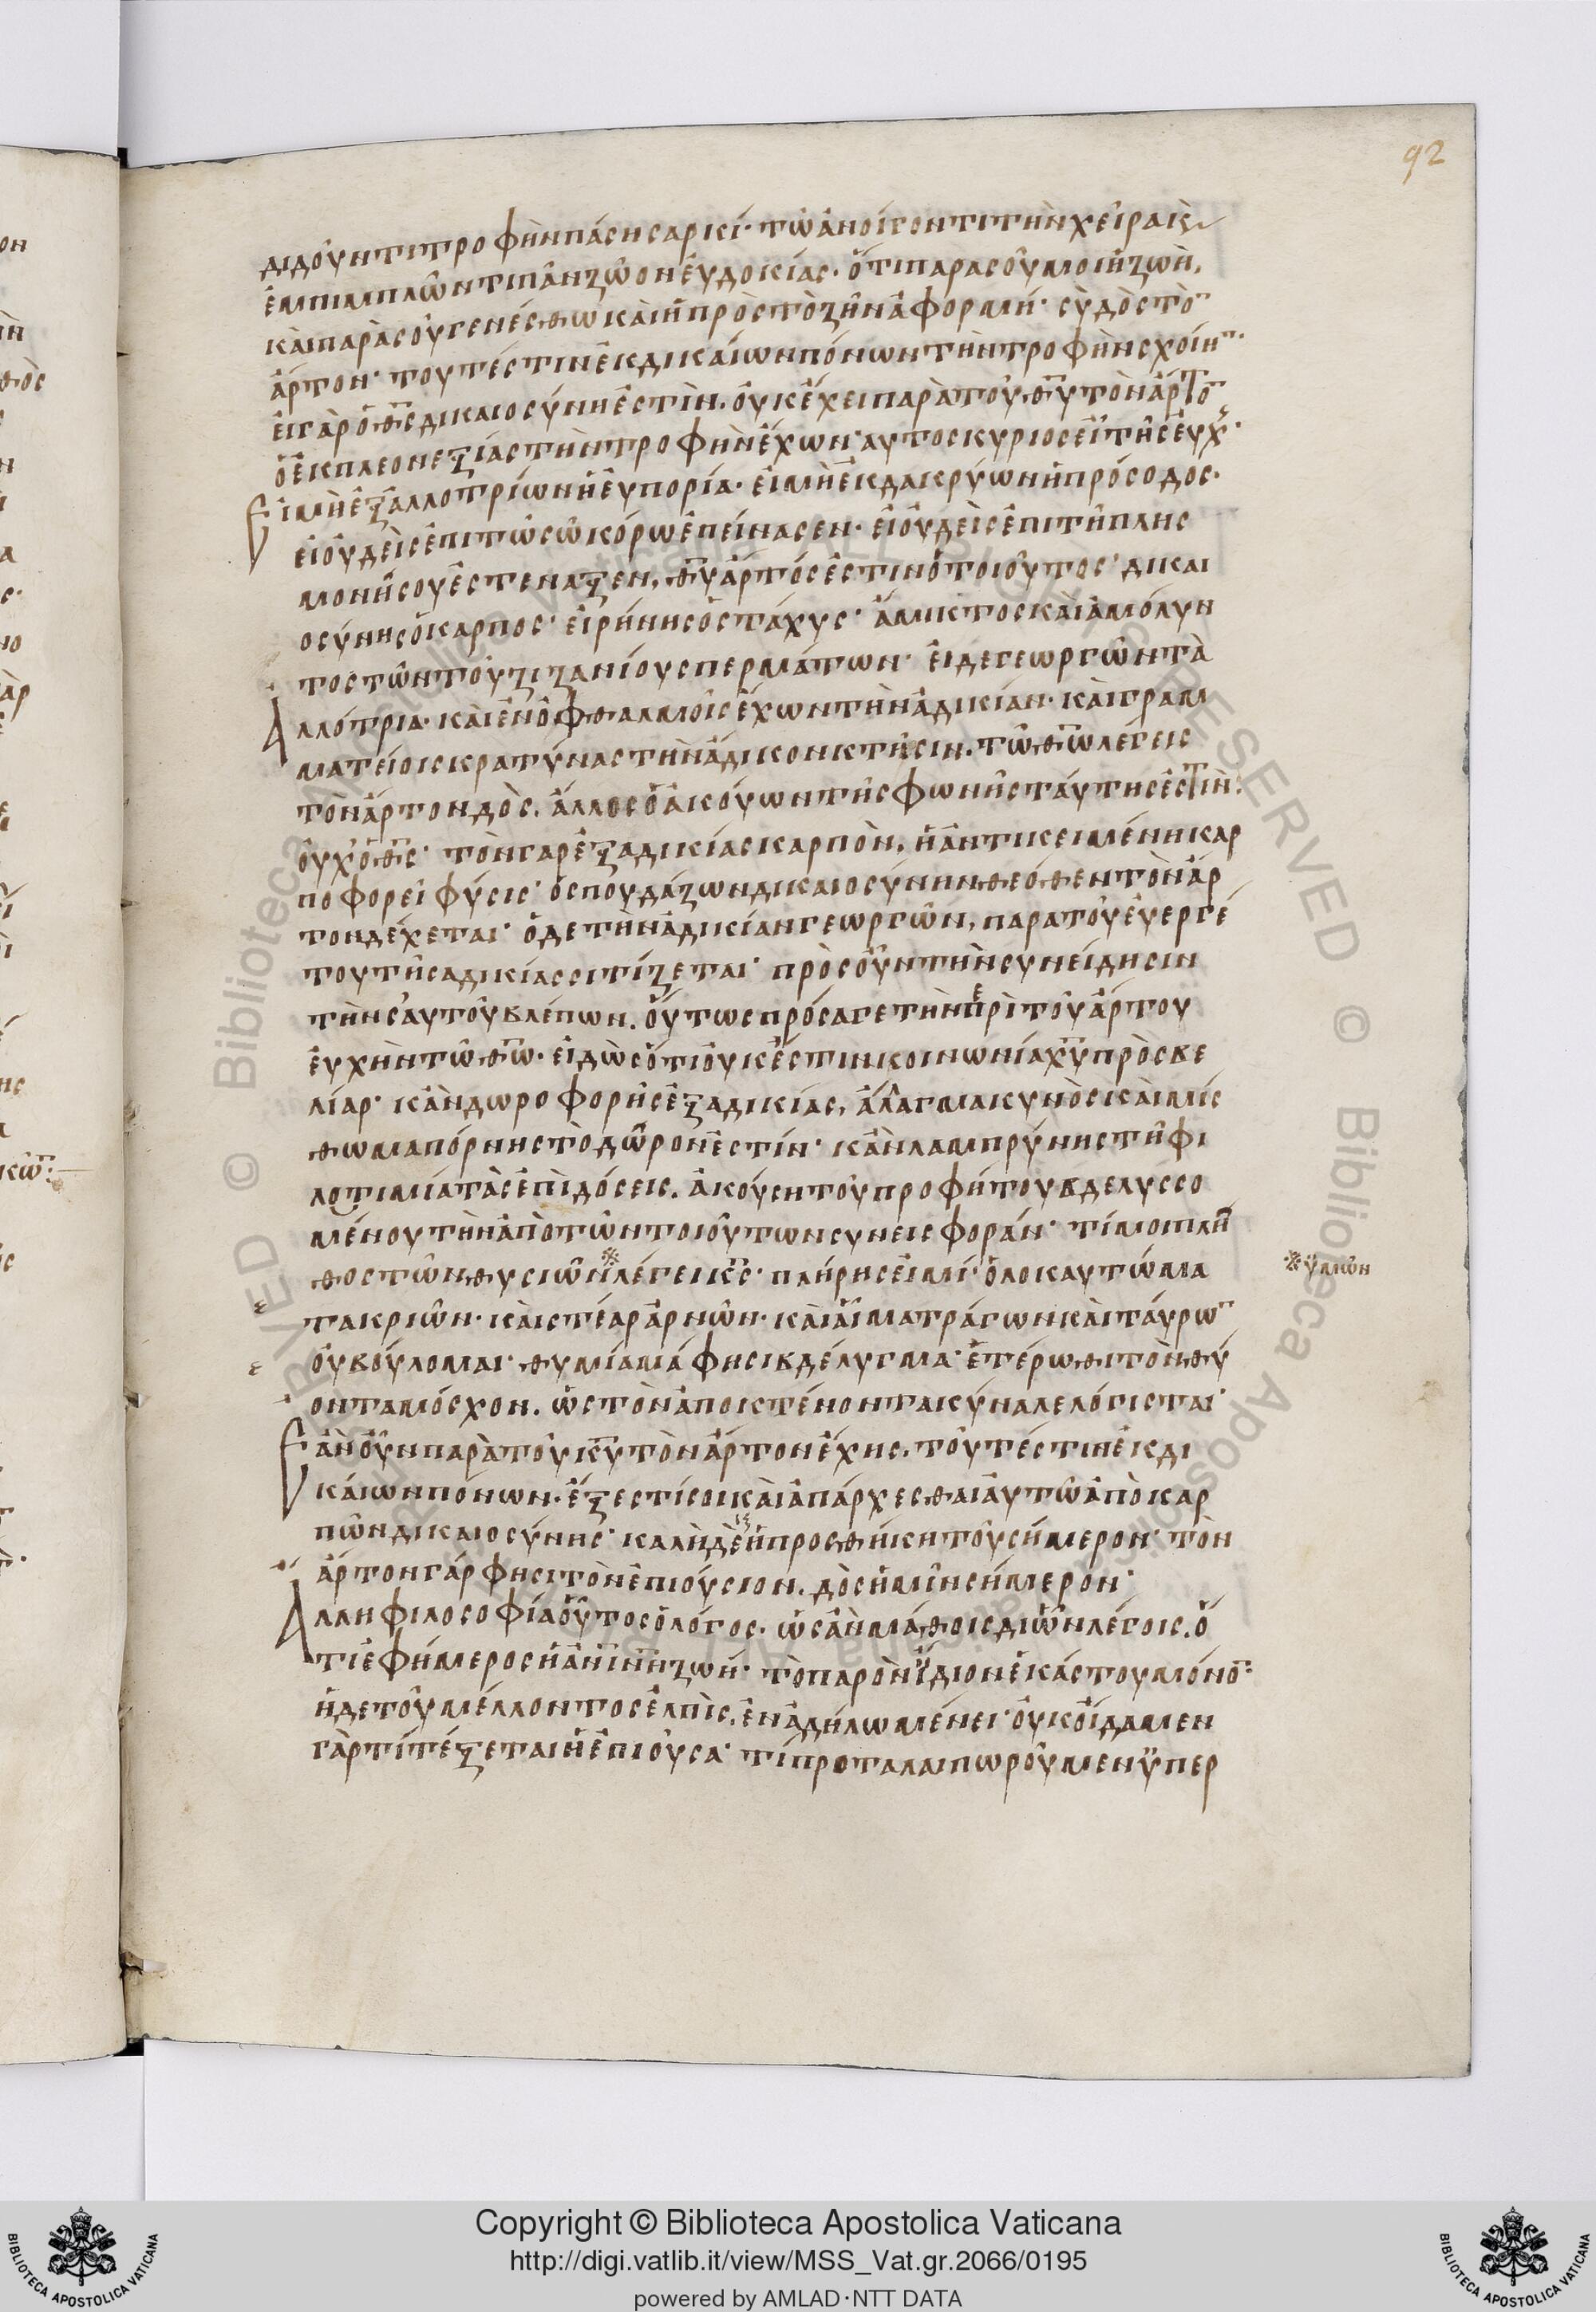 92
διδοῦντι τροφὴν πάσῃ σαρκί· τῶ ἀνοίγοντι τὴν χεῖρα κ(αὶ)
ἐμπιμπλῶντι πᾶν ζῶον εὐδοκίας. ὅτι παρα σοῦ μοι ἡ ζωὴ,
καὶ παρὰ σοῦ γενέσθω καὶ ἡ πρὸς τὸ ζῆν ἀφορμή· σὺ δὸς τὸ̅
ἄρτον· τουτέστιν ἐκ δικαίων πόνων τὴν τροφὴν σχοίη̅·
εἰ γὰρ ὁ θ̅ς̅ δικαιοσύνη ἐστὶν. οὐκ ἔχει παρὰ τοῦ θ̅υ̅ τὸν ἄρτο̅
ὁ ἐκ πλεονεξίας τὴν τροφὴν ἔχων· αυτος κυριος εἶ τῆς εὐχ̅·
Εἰ μὴ ἐξ αλλοτρίων ἡ ἐυπορία· εἰ μὴ ἐκ δακρύων ἡ πρόσοδος·
εἰ οὐδεὶς ἐπι τῶ σῶ κόρω ἐπείνασεν· εἰ οὐδεὶς ἐπι τῆ πλησ
μονῆ σου ἐστεναξεν, θ̅υ̅ ἄρτός ἐστιν ὁ τοιοῦτος· δικαι
οσύνης ὁ καρπος· εἰρήνης ὁ στάχυς· ἄμικτος καὶ ἀμόλυν
τος τῶν τοῦ ζιζανίου σπερμάτων· εἰ δε γεωργῶν τὰ
Αλλότρια· καὶ ἐν ὀφθαλμοῖς ἔχων τὴν ἀδικίαν· καὶ γραμ
ματείοις κρατύνας τὴν ἄδικον κτῆσιν. τῶ θ̅ω̅ λέγεις
τὸν ἄρτον δὸς. ἄλλος ὁ ἀκούων τῆς φωνῆς ταύτης ἐστὶν·
οὐχ ὁ θ̅ς̅· τὸν γαρ ἐξ αδικίας καρπὸν, ἡ ἀντικειμένη καρ
ποφορεῖ φύσις· ὁ σπουδάζων δικαιοσύνην θεόθεν τὸν ἄρ
τον δέχεται· ὁ δε τὴν ἀδικίαν γεωργῶν, παρα τοῦ εὐεργέ
του τῆς αδικίας σιτίζεται· πρὸς οὖν τὴν συνείδησιν
τὴν σἀυτοῦ βλέπων. οὕτως πρόσαγε τὴν πε̅ρὶ τοῦ ἄρτου
εὐχὴν τῶ θ̅ω̅· εἰδὼς ὅτι οὐκ ἔστιν κοινωνία χ̅υ̅ πρὸς βε
λίαρ· κἂν δωροφορῆς ἐξ αδικίας, ἄλλαγμα κυνὸς καὶ μίσ
θωμα πόρνης τὸ δῶρον ἐστίν· κἂν λαμπρύνης τῆ φι
λοτιμία τὰς ἐπιδόσεις. ἀκούση τοῦ προφήτου βδελυσσο
μένου τὴν ἀπὸ τῶν τοιούτων συνεισφοράν· τί μοι πλῆ
θος τῶν θυσιῶν※ λέγει κ̅ς̅· πλήρης εἰμί· ὁλοκαυτώμα
※ὑμῶν
τα κριῶν· καὶ στέαρ ἀρνῶν· καὶ αἷμα τράγων καὶ ταύρω̅
οὐ βούλομαι· θυμίαμά φησι βδέλυγμα· ἑτέρωθι τὸν θύ
οντα μόσχον. ὡς τὸν ἀποκτένοντα κύνα λελόγισται·
Εἀν οὖν παρὰ τοῦ κ̅υ̅ τὸν ἄρτον ἔχης. τοῦτέστιν ἐκ δι
καίων πόνων· ἔξεστί σοι καὶ ἀπάρχεσθαι ἀυτῶ ἀπὸ καρ
πῶν δικαιοσύνης· καλὴ δὲ ἡ προσθήκη τοῦ σήμερον· τὸν
ἄρτον γάρ φησι τὸν ἐπιούσιον. δὸς ἡμῖν σήμερον·
Αλλη φιλοσοφία οὗτος ὁ λόγος· ὡς ἂν μάθοις δι ὧν λέγοις. ὅ
τι ἐφήμερος ἡ ἀν̅ίν̅η ζωή· τὸ παρὸν ἴδιον ἑκάστου μόνο̅·
ἡ δε τοῦ μέλλοντος ἐλπὶς, ἐν ἀδήλω μένει· οὐκ οἴδαμεν
γὰρ τί τέξεται ἡ ἐπιοῦσα· τί προταλαιπωροῦμεν ὑπερ
Copyright © Biblioteca Apostolica Vaticana
http://digi.vatlib.it/view/MSS_Vat.gr.2066/0195
powered by AMLAD·NTT DATA